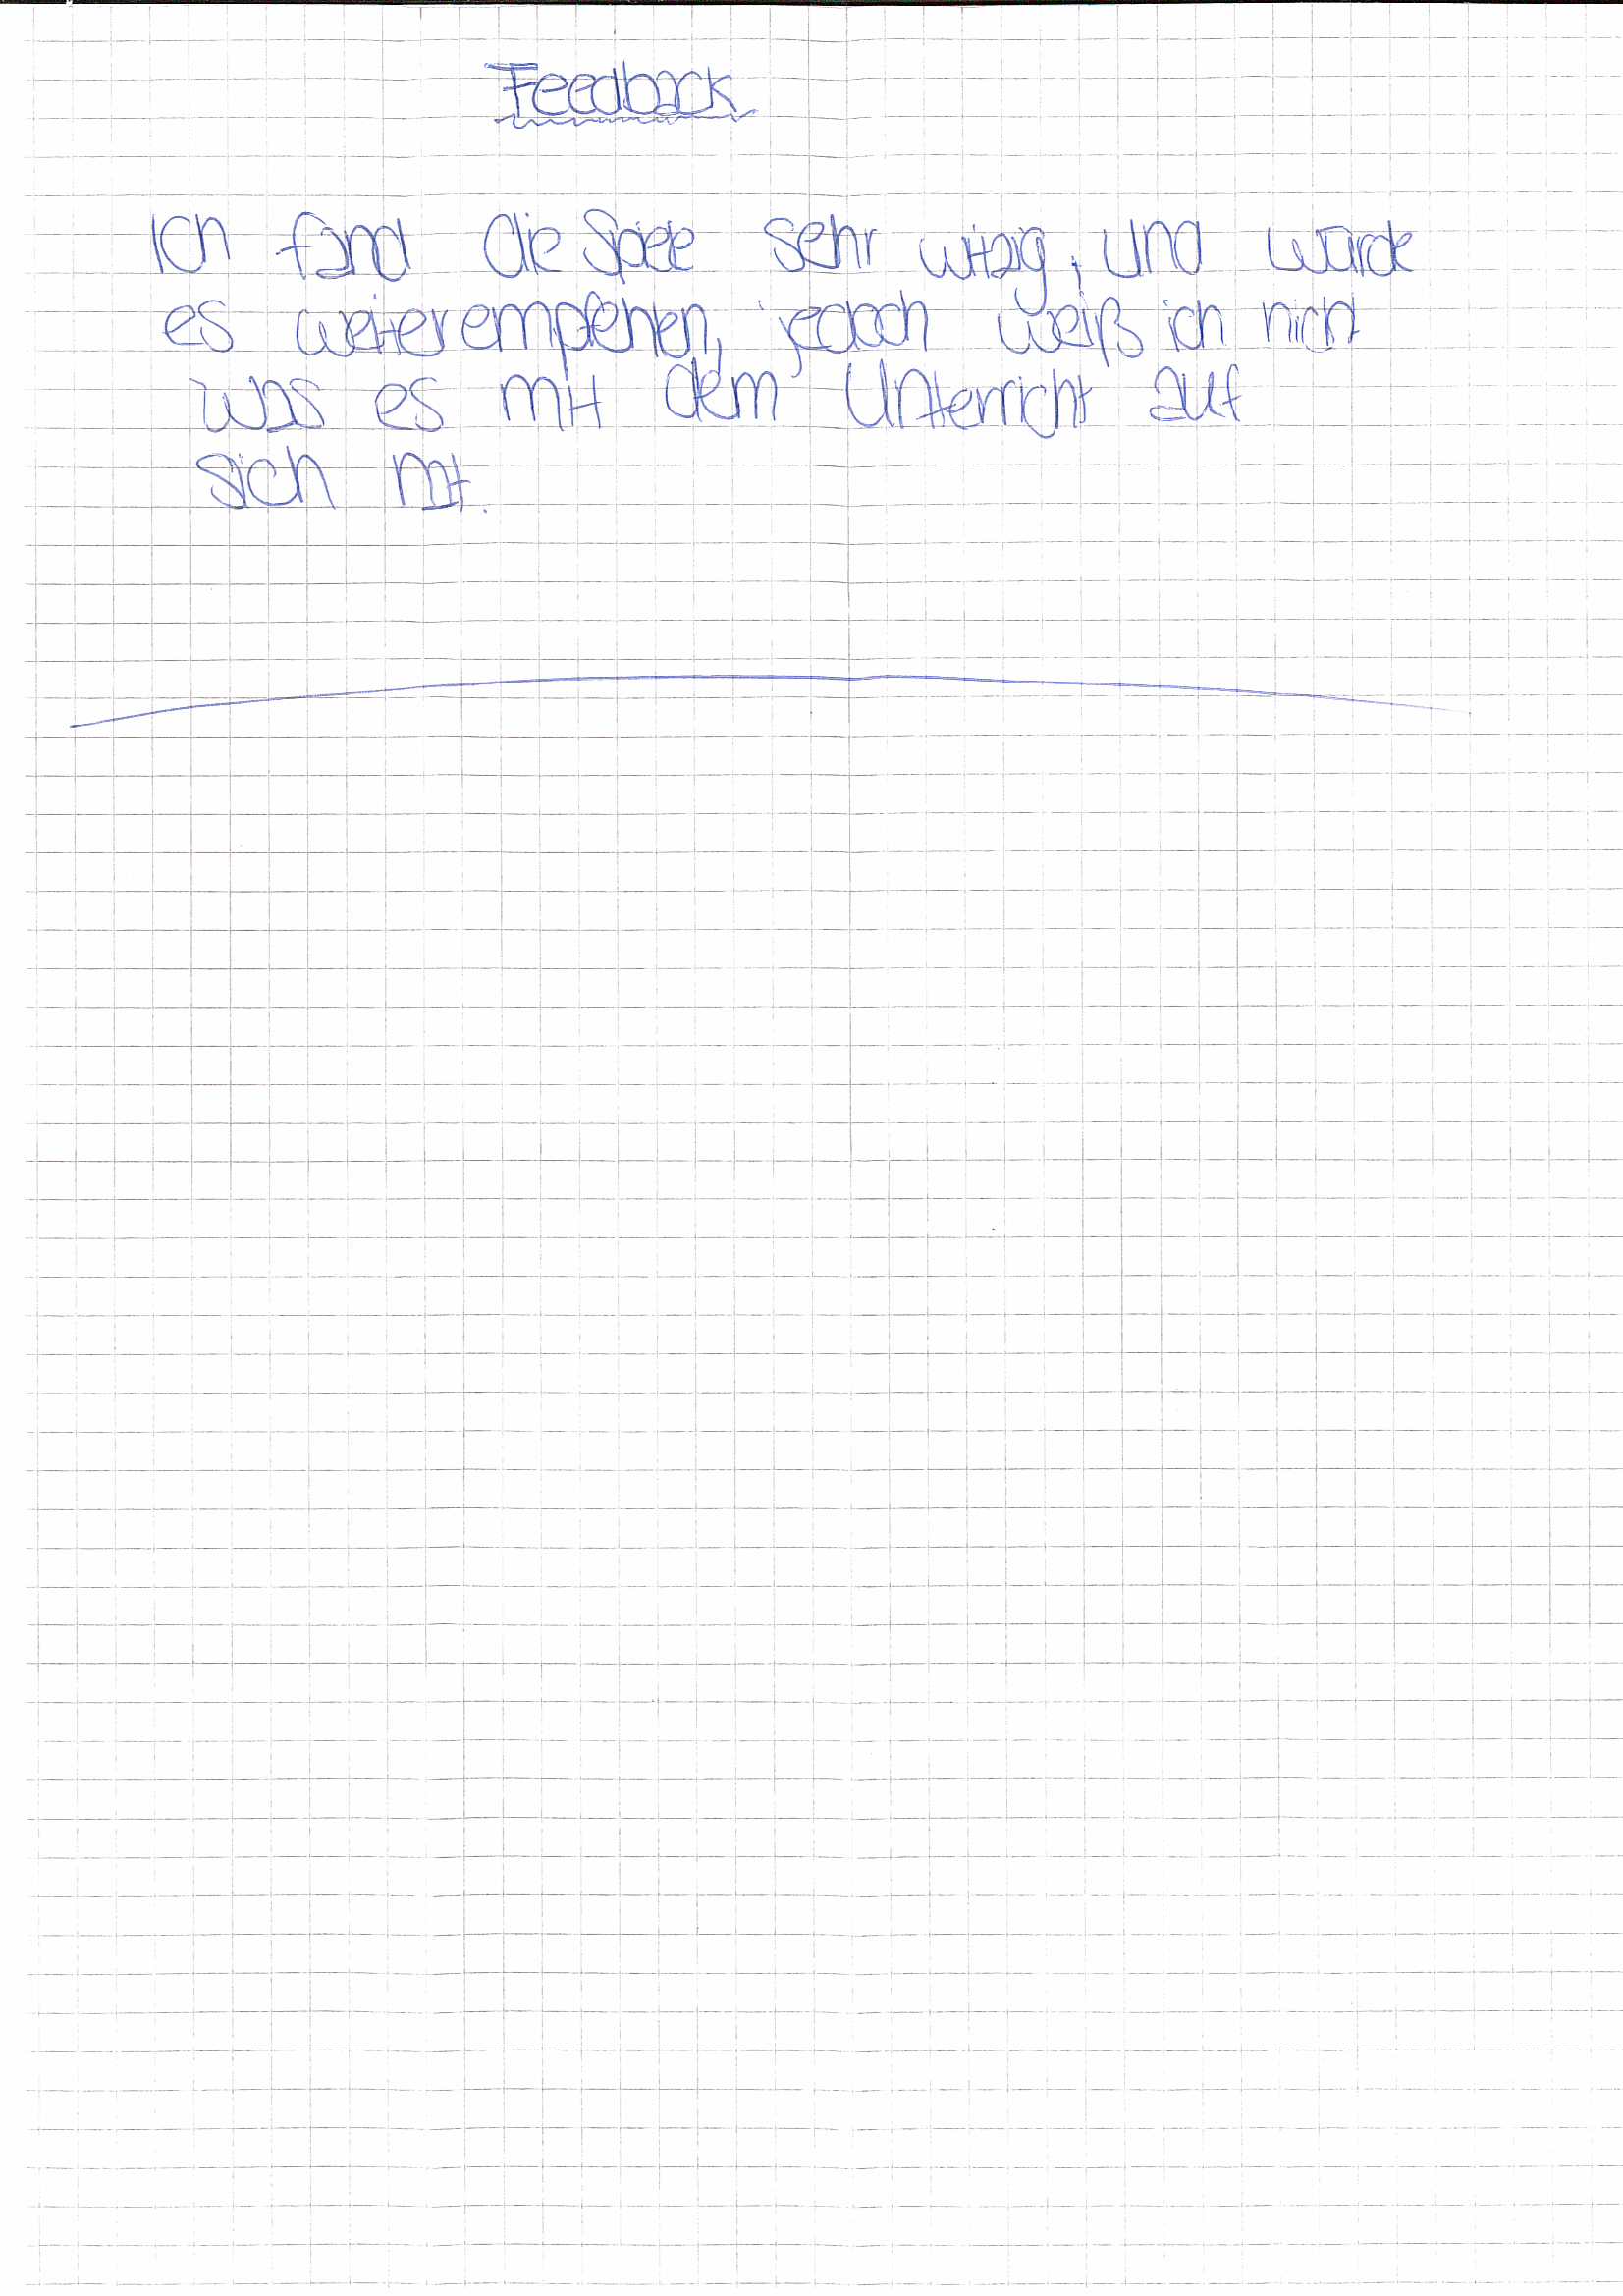 Feedback
Ich fand die Spiele sehr witzig, und würde
es weiterempfehlen, jedoch weiß ich nicht
was es mit dem Unterricht auf
sich hat.